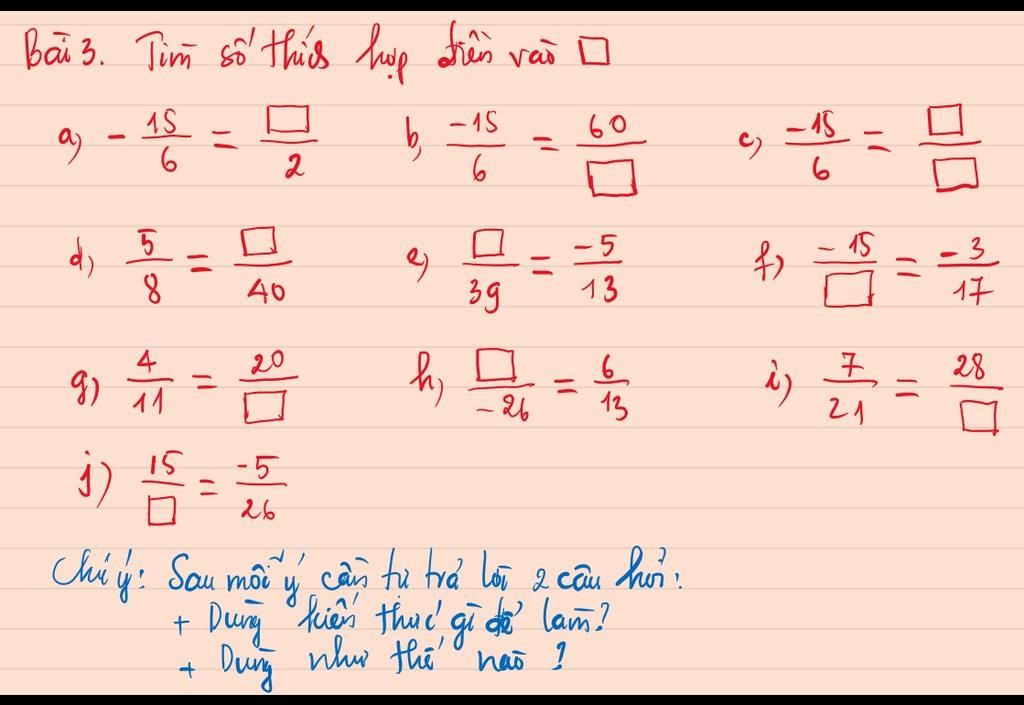 Bài 3. Tìm số thích hợp điền vào □
a) - 15/6 = □/2 b) -15/6 = 60/□ c) -15/6 = □/□
d) 5/8 = □/40 e) □/39 = -5/13 f) -15/□ = -3/17
g) 4/11 = 20/□ h) □/-26 = 6/13 i) 7/21 = 28/□
j) 15/□ = -5/26
Chú ý: Sau mỗi ý cần tự trả lời 2 câu hỏi:
+ Dùng kiến thức gì để làm?
+ Dùng như thế nào?